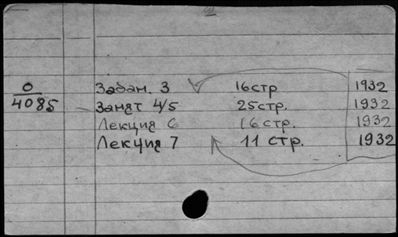 О Задан. 3 16стр 1932
4085 Занят 4/5 25стр. 1932
Лекция 6 16 стр. 1932
Лекция 7 11 стр. 1932